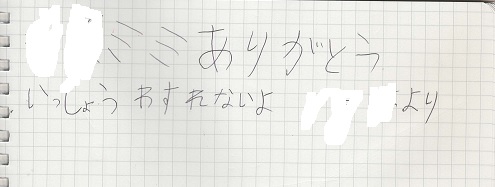 ありがとう
いっしょう わすれないよ より